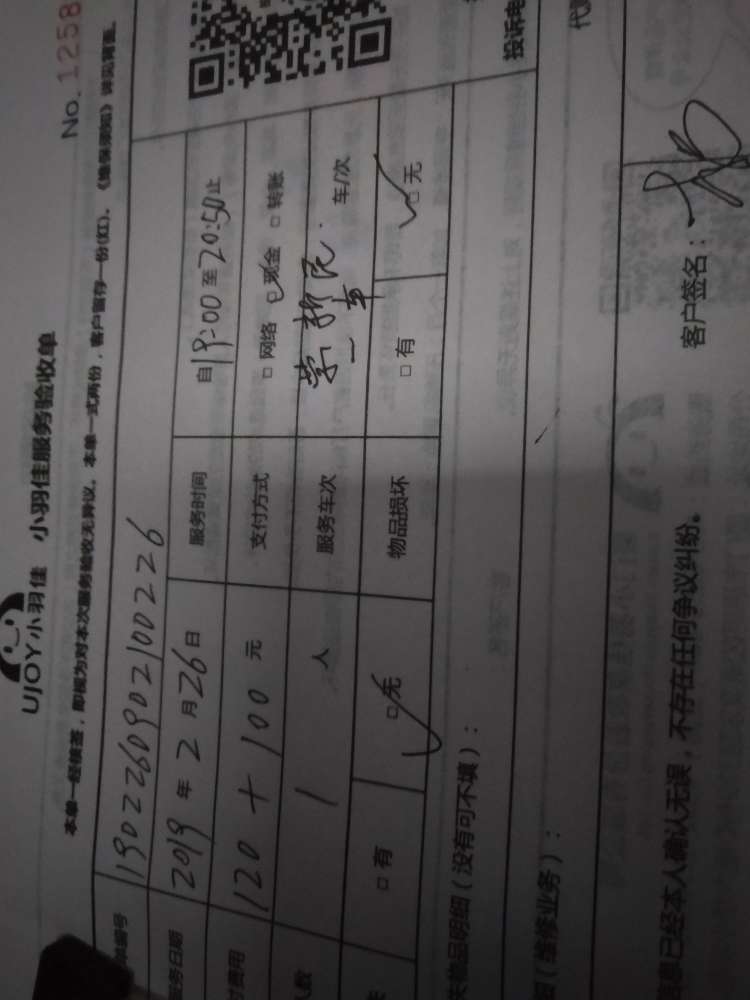 UJOY小羽佳 小羽佳服务验收单
No. 1258
本单一经核签，即视为对本次服务验收无异议。本单一式两份，客户留存一份(红)。《维保须知》详见背面。
单编号 190226090210022 6
务日期 2019 年 2 月 26 日 服务时间 自 19:00 至 20:50 止
付费用 120 + 100 元 支付方式 □ 网络 □ 现金 □ 转账
人数 1 人 服务车次 一车 车/次
□ 有 □ 无 物品损坏 □ 有 □ 无
关物品明细（没有可不填）：
投诉电
（维修业务）：
代
信息已经本人确认无误，不存在任何争议纠纷。 客户签名：